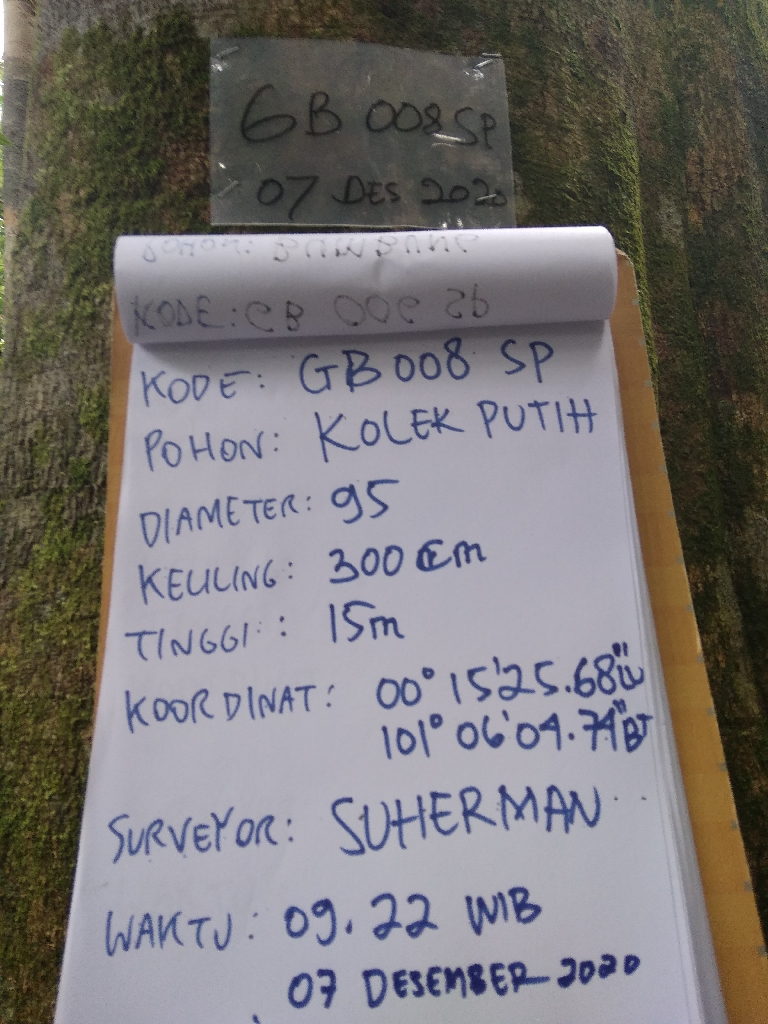 GB 008 SP
07 DES 2020
KODE: GB 008 SP
POHON: KOLEK PUTIH
DIAMETER: 95
KELILING: 300 cm
TINGGI: 15m
KOORDINAT: 00° 15'25.68"LU
101° 06'04.74"BT
SURVEYOR: SUHERMAN
WAKTU: 09.22 WIB
07 DESEMBER 2020